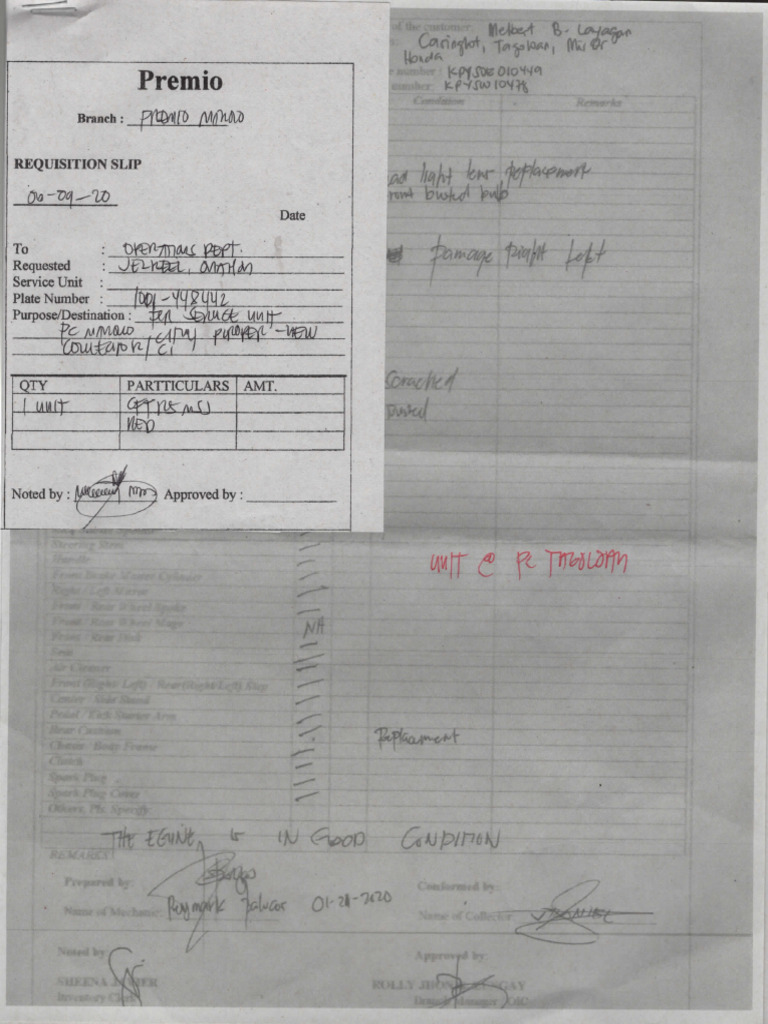 Premio
Branch : PREMIO
REQUISITION SLIP
06-09-20
Date
To : OPERATIONS DEPT.
Requested :
Service Unit :
Plate Number : 1001-448442
Purpose/Destination : FOR SERVICE UNIT
PC CITY PROPER - NEW
COLLECTOR/CI
QTY PARTTICULARS AMT.
1 UNIT
RED
Noted by : Approved by :
of the customer: Melbert B. Layagan
Tagoloan, Mis Or
Honda
number : KPY50E010449
number: KPY50W10478
Condition Remarks
light lens Replacement
busted bulb
Damage Right Left
UNIT @ PC TAGOLOAN
Steering Stem
Handle
Front Brake Master Cylinder
Right / Left Mirror
Front / Rear Wheel Spoke
Front / Rear Wheel Mags NA
Front / Rear Hub
Seat
Air Cleaner
Front (Right/ Left) / Rear(Right/Left) Step
Center / Side Stand
Pedal / Kick Starter Arm
Rear Cushion Replacement
Chassis/ Body Frame
Clutch
Spark Plug
Spark Plug Cover
Others, Pls. Specify
THE EGINE IS IN GOOD CONDITION
REMARKS:
Prepared by: Conformed by:
Name of Mechanic: Roymark 01-21-2020 Name of Collector:
Noted by: Approved by:
SHEENA
Inventory Clerk
ROLLY
Branch Manager/OIC